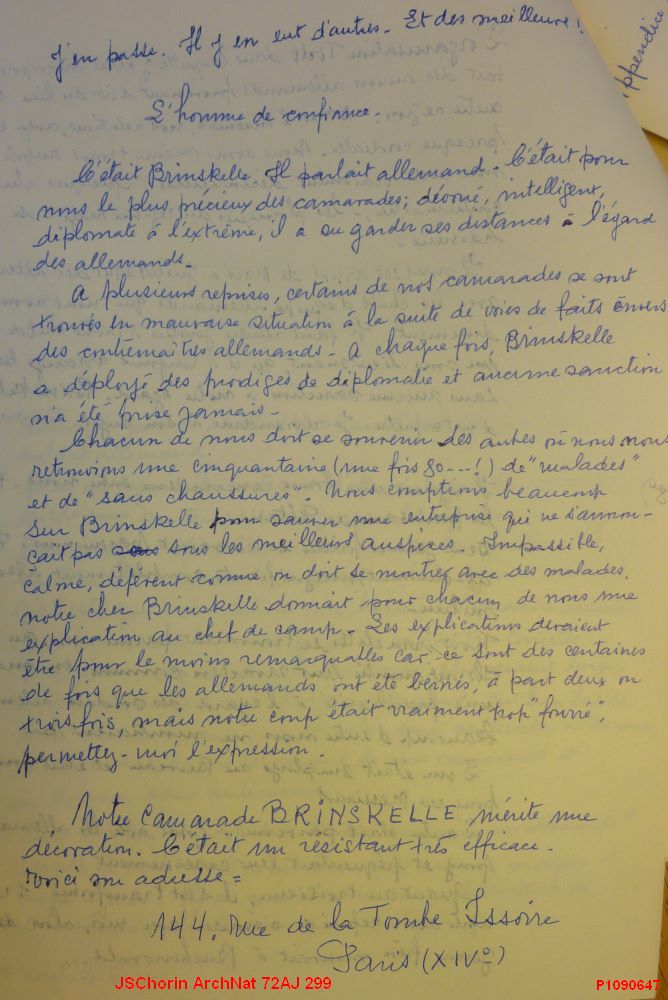 J'en passe. Il y en eut d'autres. Et des meilleurs !
L'homme de confiance.
C'était Brinskelle. Il parlait allemand. C'était pour
nous le plus précieux des camarades; dévoué, intelligent,
diplomate à l'extrême, il a su garder ses distances à l'égard
des allemands.
A plusieurs reprises, certains de nos camarades se sont
trouvés en mauvaise situation à la suite de voies de faits envers
des contremaîtres allemands. A chaque fois, Brinskelle
a déployé des prodiges de diplomatie et aucune sanction
n'a été prise jamais.
Chacun de nous doit se souvenir des autres où nous nous
retrouvions une cinquantaine (une fois 80---!) de "malades"
et de "sans chaussures". Nous comptions beaucoup
sur Brinskelle pour sauver une entreprise qui ne s'annon-
çait pas sous les meilleurs auspices. Impassible,
calme, déférent comme on doit se montrer avec des malades,
notre cher Brinskelle donnait pour chacun de nous une
explication au chef de camp. Les explications devaient
être pour le moins remarquables car ce sont des centaines
de fois que les allemands ont été bernés, à part deux ou
trois fois, mais notre coup était vraiment trop "fourré",
permettez-moi l'expression.
Notre Camarade BRINSKELLE mérite une
décoration. C'était un résistant très efficace.
Voici son adresse =
144. Rue de la Tombe Issoire
Paris (XIVº)
ppendice
JSChorin ArchNat 72AJ 299
P1090647